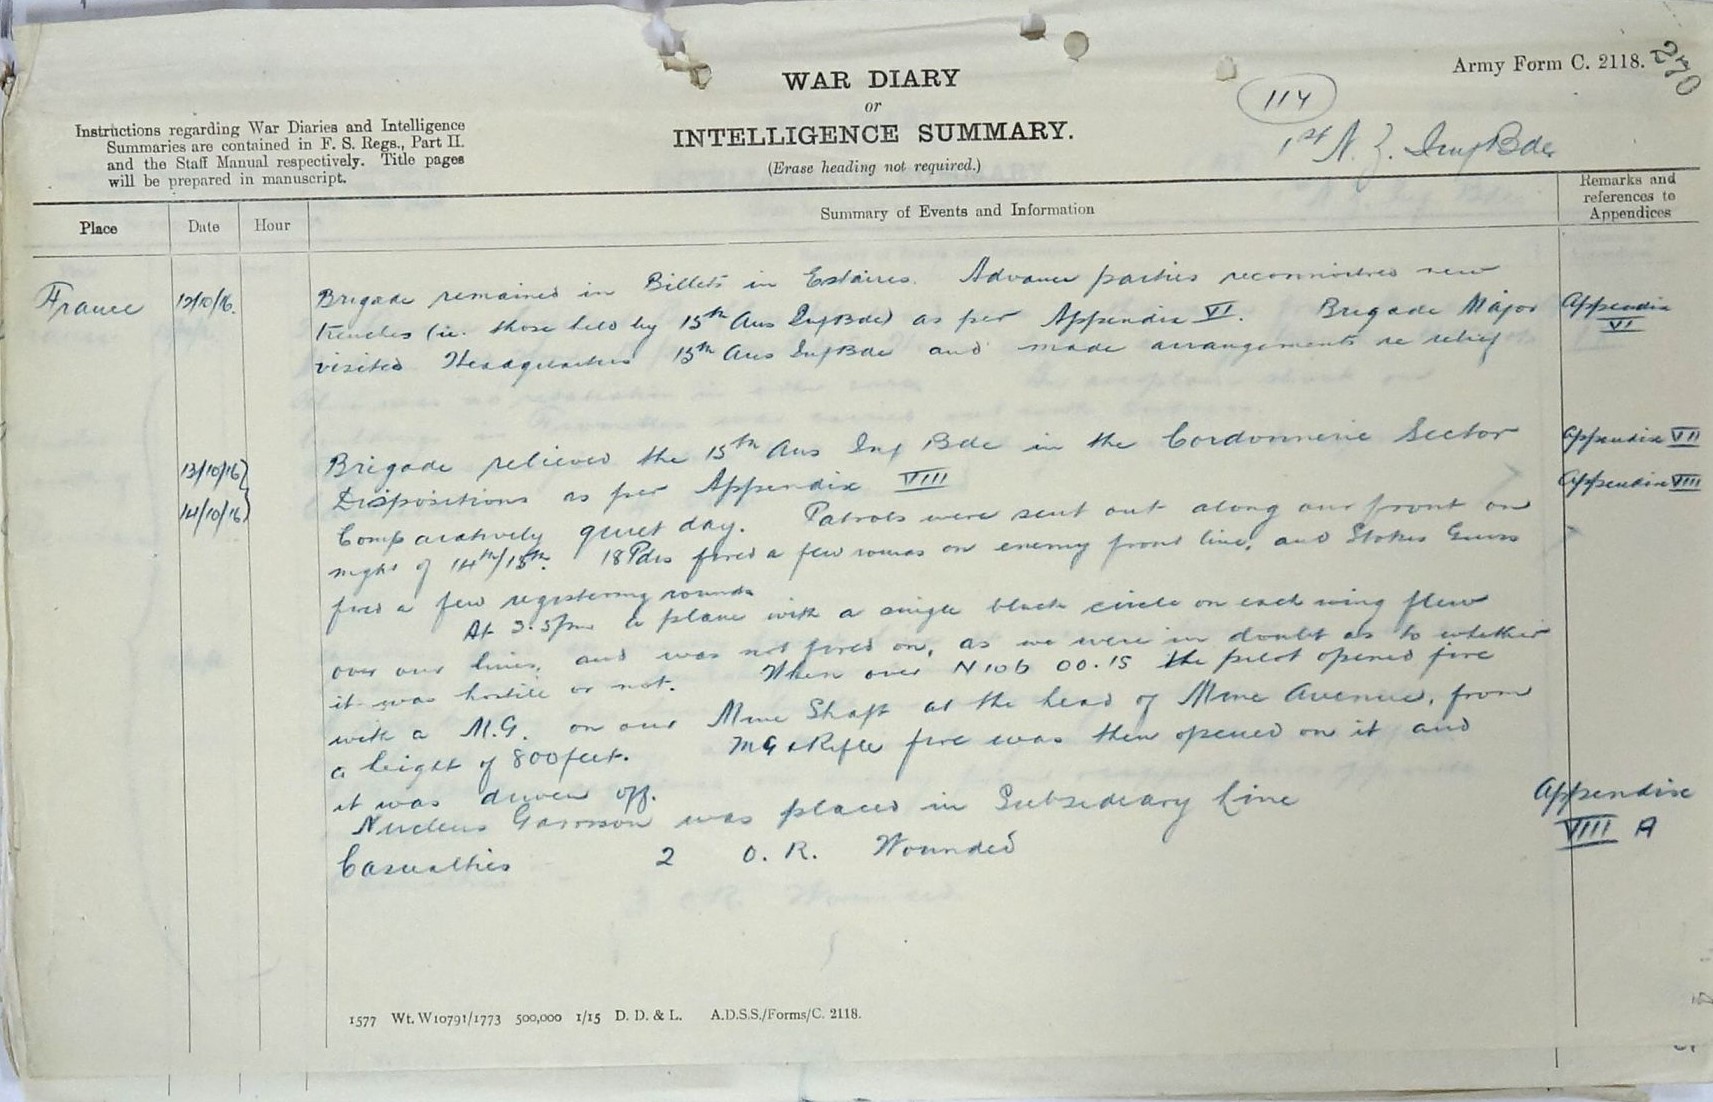 Army Form C. 2118.
270
WAR DIARY
or
INTELLIGENCE SUMMARY.
(Erase heading not required.)
114
1st N. Z. Inf Bde
Instructions regarding War Diaries and Intelligence
Summaries are contained in F. S. Regs., Part II.
and the Staff Manual respectively. Title pages
will be prepared in manuscript.
Place
Date
Hour
Summary of Events and Information
Remarks and
references to
Appendices
France
12/10/16.
Brigade remained in Billets in Estaires. Advance parties reconnoitred new
trenches (i.e. those held by 15th Aus Inf Bde) as per Appendix VI. Brigade Major
visited Headquarters 15th Aus Inf Bde and made arrangements re relief
Appendix
VI
13/10/16}
14/10/16}
Brigade relieved the 15th Aus Inf Bde in the Cordonnerie Sector
Appendix VII
Dispositions as per Appendix VIII
Appendix VIII
Comparatively quiet day. Patrols were sent out along our front on
night of 14th/15th. 18 Pdrs fired a few rounds on enemy front line, and Stokes Guns
fired a few registering rounds
At 3.5pm a plane with a single black circle on each wing flew
over our lines, and was not fired on, as we were in doubt as to whether
it was hostile or not. When over N10b 00.15 the pilot opened fire
with a M.G. on our Mine Shaft at the head of Mine Avenue, from
a height of 800 feet. MG & Rifle fire was then opened on it and
it was driven off.
Nucleus Garrison was placed in Subsidiary Line
Appendix
VIII A
Casualties 2 O. R. Wounded
1577 Wt. W10791/1773 500,000 1/15 D. D. & L. A.D.S.S./Forms/C. 2118.